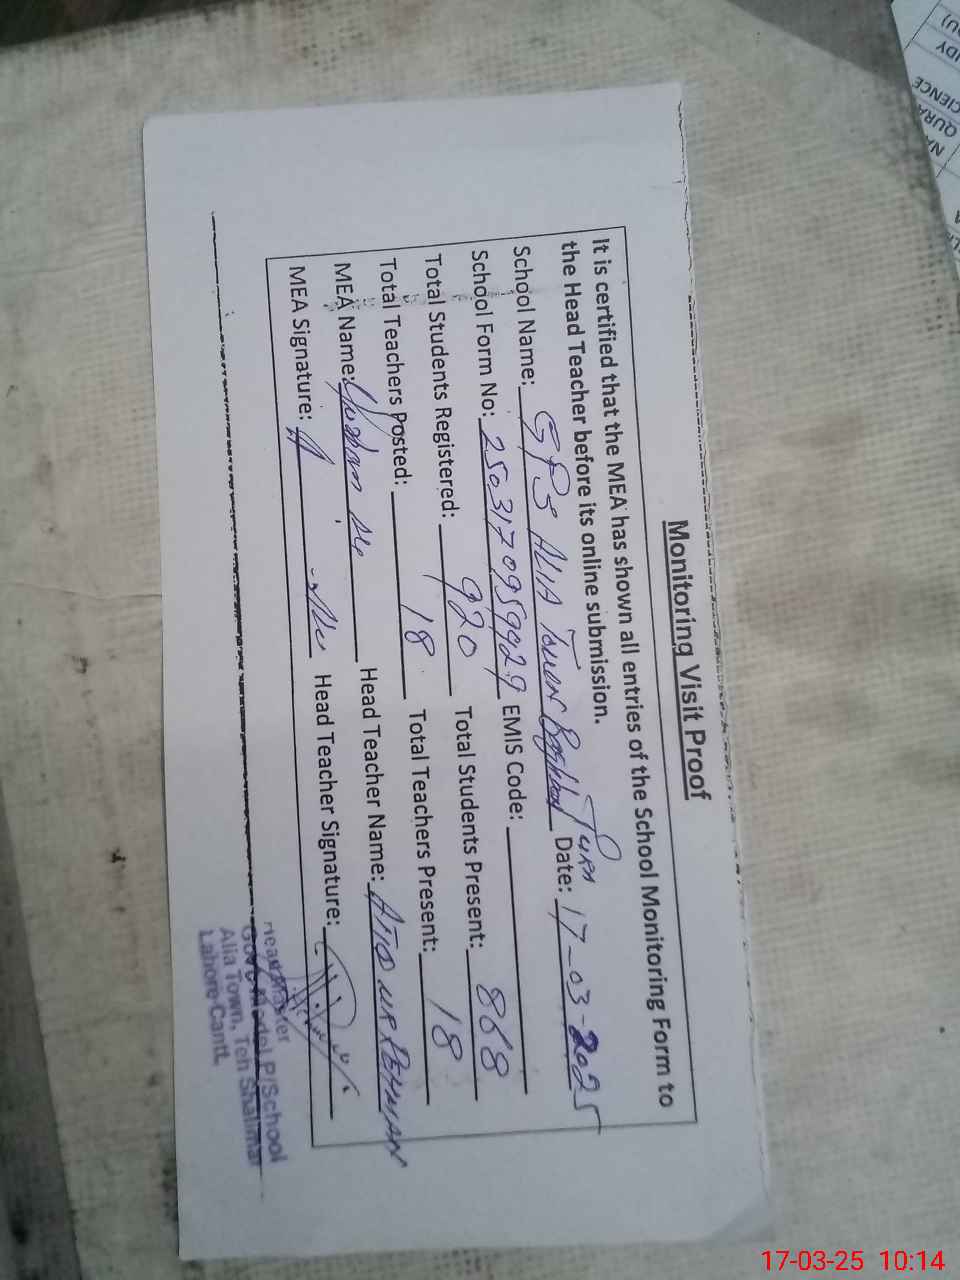 Monitoring Visit Proof
It is certified that the MEA has shown all entries of the School Monitoring Form to
the Head Teacher before its online submission.
School Name: GPS ALIA Town Pura Date: 17-03-2025
School Form No: EMIS Code:
Total Students Registered: 920 Total Students Present: 868
Total Teachers Posted: 18 Total Teachers Present: 18
MEA Name: Head Teacher Name: UR REHMAN
MEA Signature: Head Teacher Signature:
Head Master
Govt Model P/School
Alia Town, Teh Shalimar
Lahore Cantt.
CIENCE
QURA
17-03-25 10:14